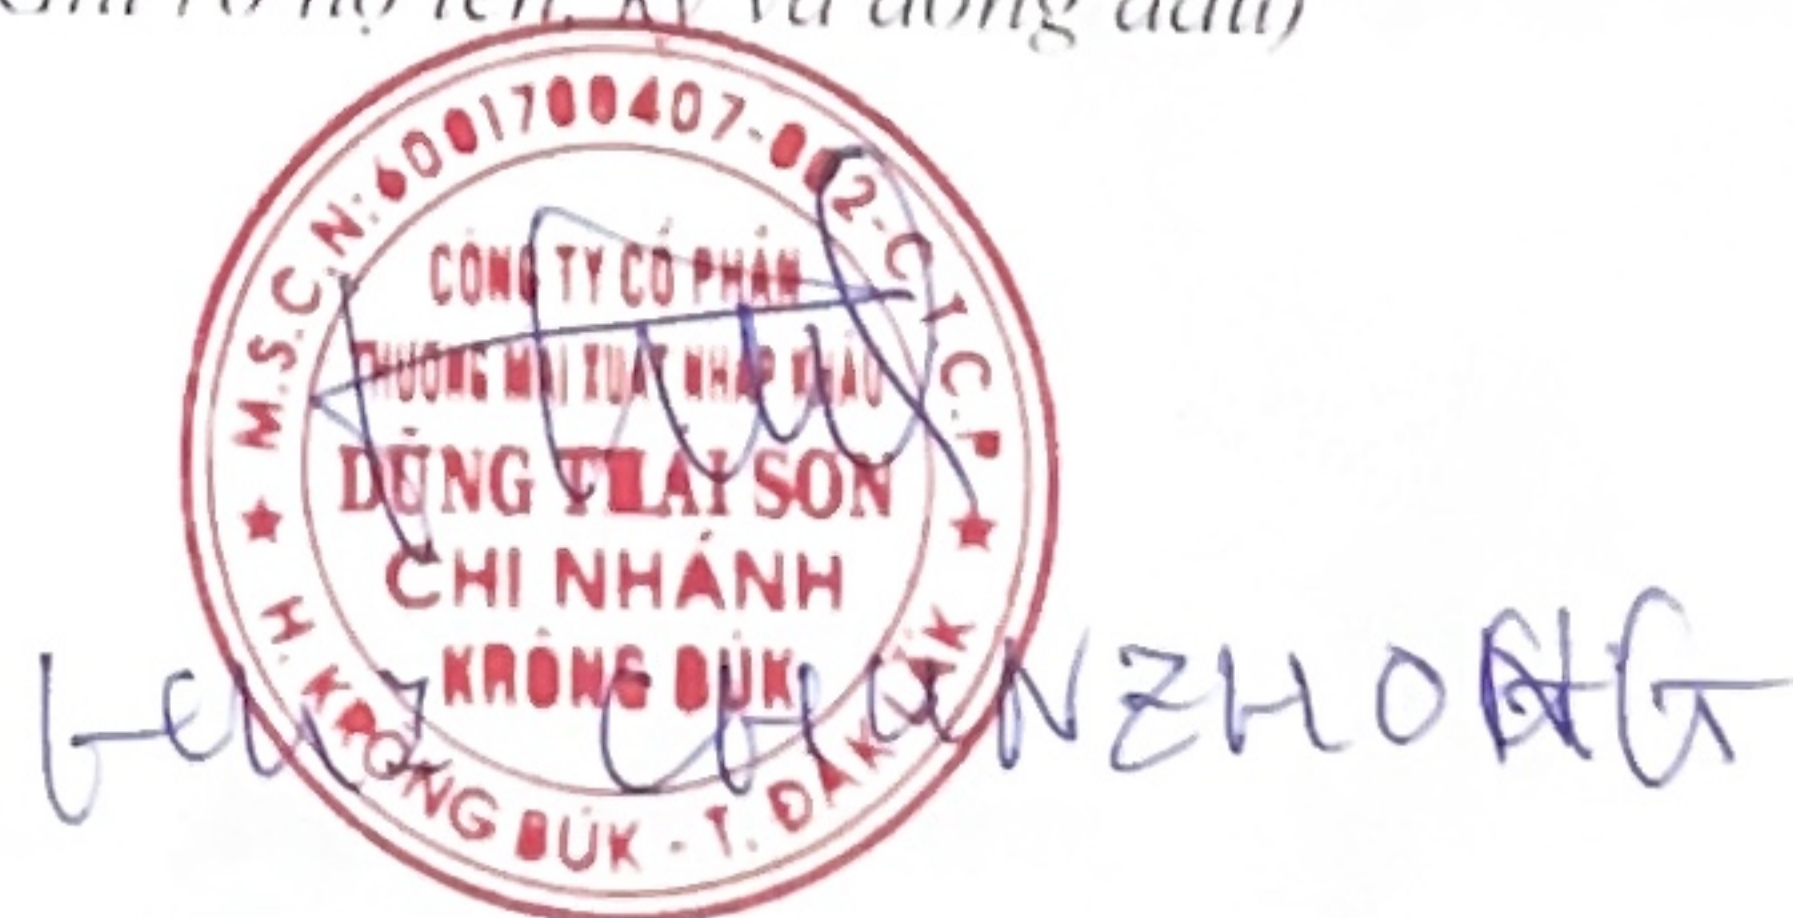 Ghi rõ họ tên, ký và đóng dấu)
M.S.C.N:6001700407-002-C.T.C.P
CÔNG TY CỔ PHẦN
THƯƠNG MẠI XUẤT NHẬP KHẨU
DŨNG THÁI SƠN
CHI NHÁNH
KRÔNG BÚK
H. KRÔNG BÚK - T. ĐẮK LẮK
CHUNZHONG